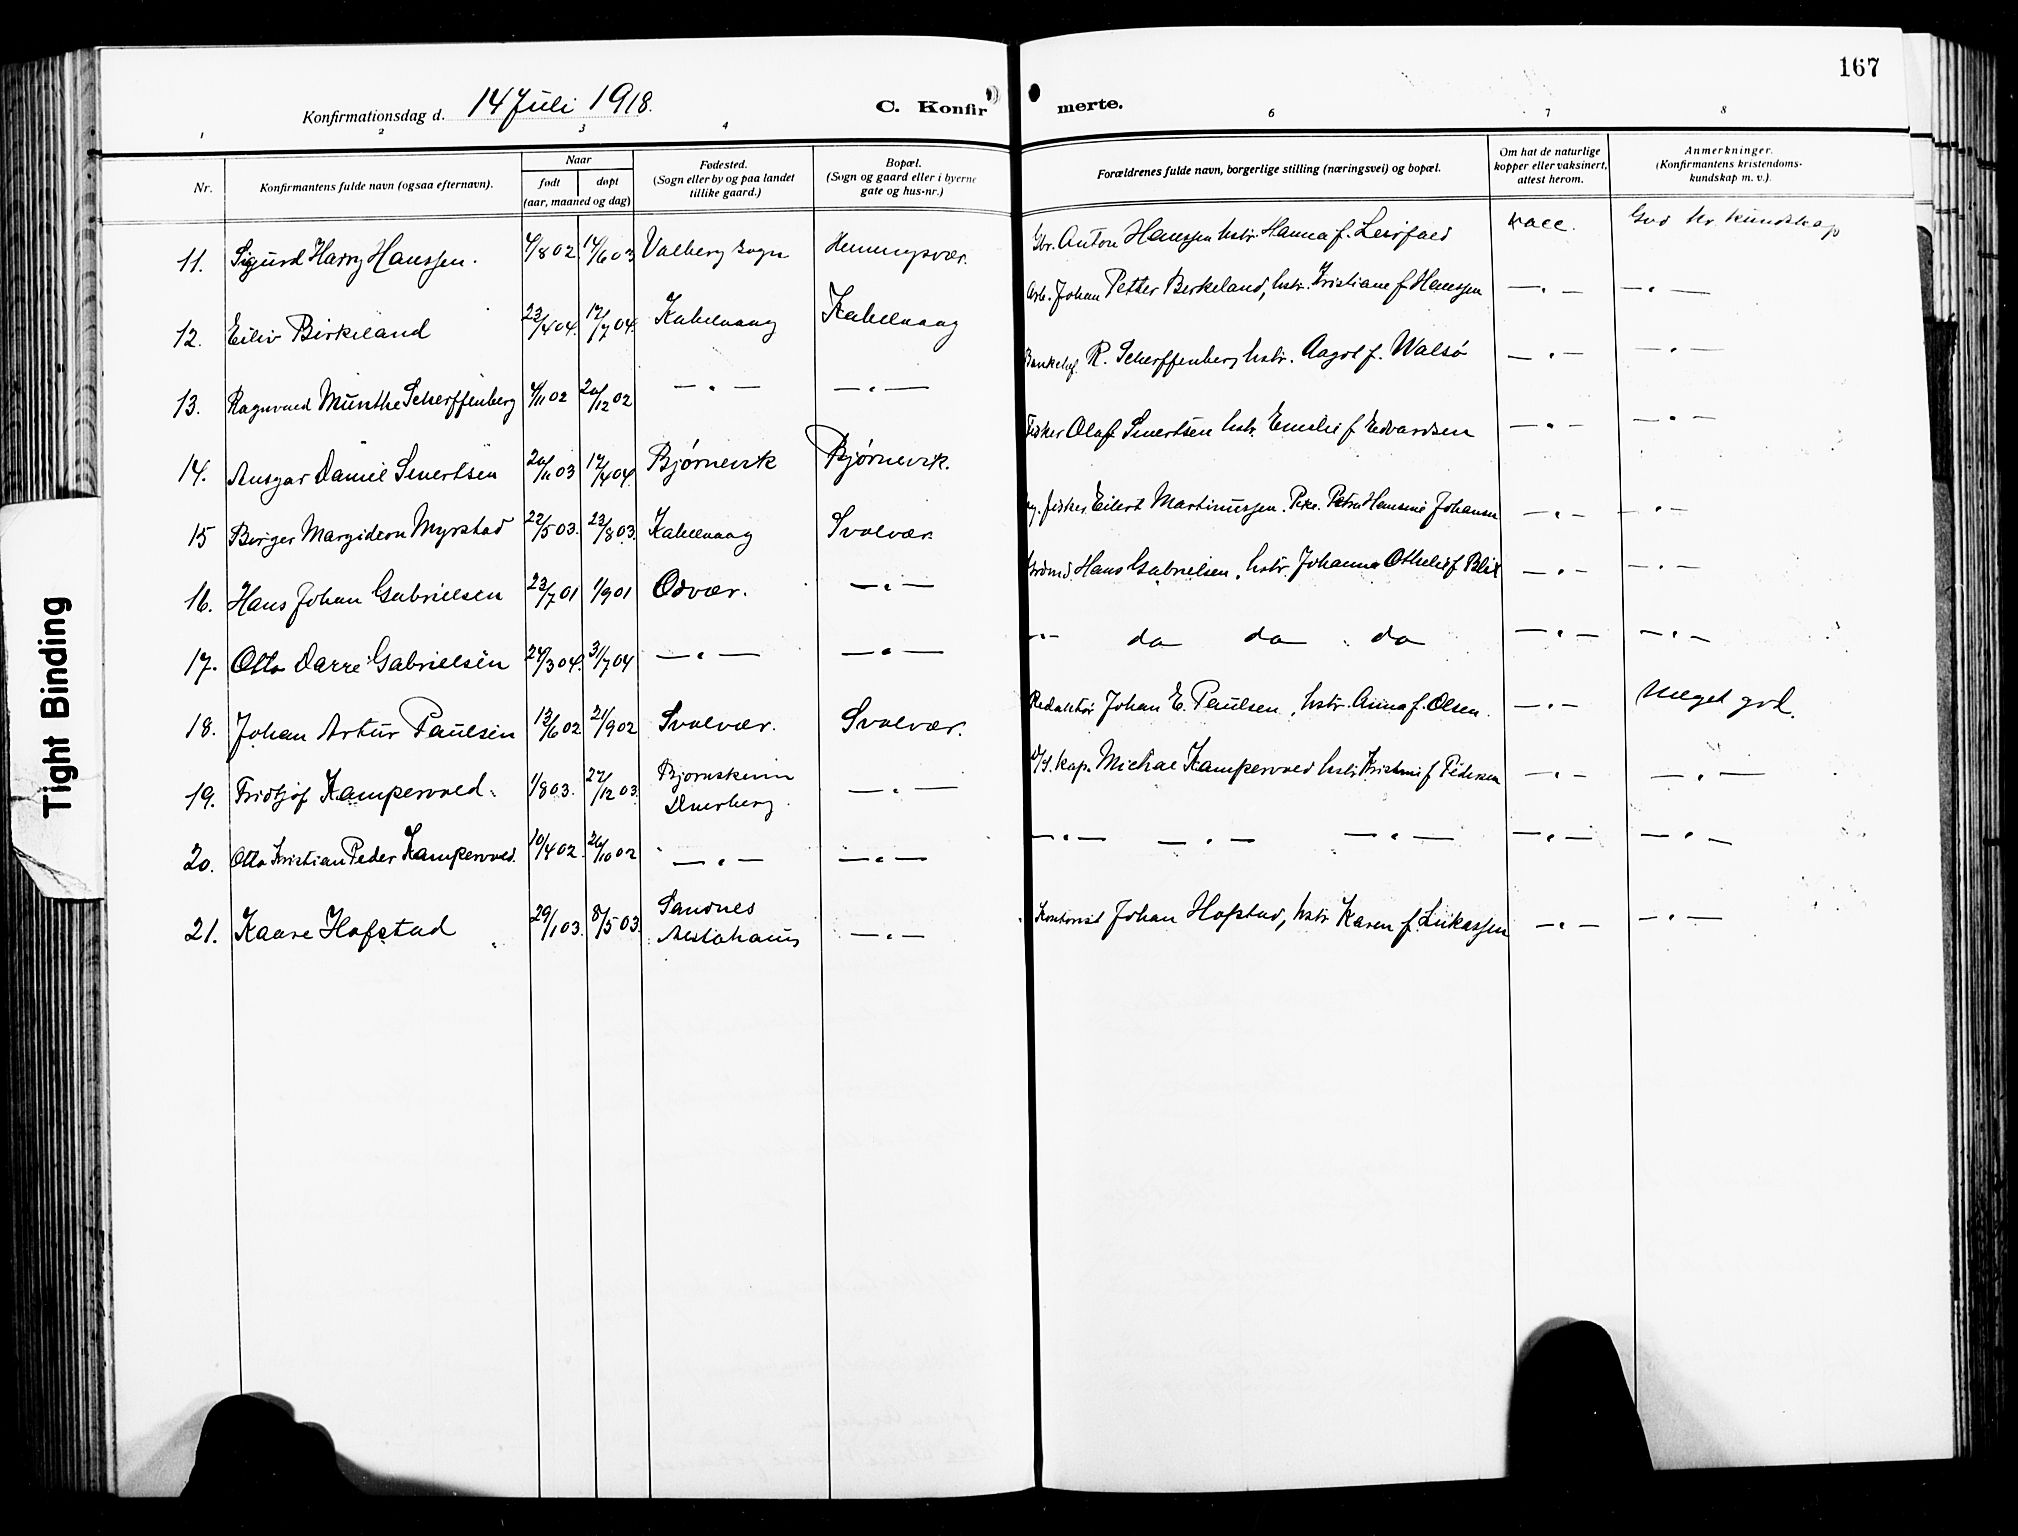 167
Konfirmationsdag d. 14 Juli 1918.
C. Konfirmerte.
1 2 3 4 6 7 8
Nr.
Konfirmantens fulde navn (ogsaa efternavn).
Naar
født døpt
(aar, maaned og dag)
Fødested.
(Sogn eller by og paa landet
tillike gaard.)
Bopæl.
(Sogn og gaard eller i byerne
gate og hus-nr.)
Forældrenes fulde navn, borgerlige stilling (næringsvei) og bopæl.
Om hat de naturlige
kopper eller vaksinert,
attest herom.
Anmerkninger.
(Konfirmantens kristendoms-
kundskap m. v.).
11. Sigurd Harry Hanssen. 4/8 02. 14/6 03 Valberg sogn Henningsvær. Gbr. Anton Hanssen hstr. Hanna f. Leirfald vacc. God kr. kundskap
12. Eiliv Birkeland 23/4 04. 17/7 04. Kabelvaag Kabelvaag Arb. Johan Petter Berkeland, hstr. Kristiane f. Hanssen — " — — " —
13. Ragnvald Munthe Scherffenberg 4/11 02 20/12 02 — " — — " — R. Scherffenberg hstr. Aagot f. Walsö — " — — " —
14. Ansgar Daniel Sivertsen 20/11 03 17/4 04. Bjørnevik Bjørnevik. Fisker Olaf Sivertsen hstr. Emelie f. Edvardsen — " — — " —
15 Birger Margidon Myrstad 22/5 03. 23/8 03. Kabelvaag Svolvær. fisker Eilert Martinussen. Pike. Petra Hansine Johansen — " — — " —
16. Hans Johan Gabrielsen 23/7 01 1/9 01 Odvær. — " — Hans Gabrielsen, hstr. Johanna Othelie f. Blix — " — — " —
17. Otto Darre Gabrielsen 24/3 04. 31/7 04 — " — — " — — " — do do do — " — — " —
18. Johan Artur Paulsen 13/6 02 21/9 02 Svolvær. Svolvær. Redaktør Johan E. Paulsen, hstr. Anna f. Olsen. — " — Meget god.
19. Fridtjof Kampevold. 1/8 03. 27/12 03. Bjørnskinn — " — D/S. kap. Michal Kampevold hstr. Kristine f. Pedersen — " — — " —
Dverberg.
20. Otto Kristian Peder Kampevold. 10/4 02. 26/10 02 — " — — " — — " — — " — — " — — " — — " —
21. Kaare Hofstad 29/1 03. 8/5 03. Sandnes — " — Kontorist Johan Hofstad, hstr. Karen f. Lukassen — " — — " —
Alstahaug
Tight Binding